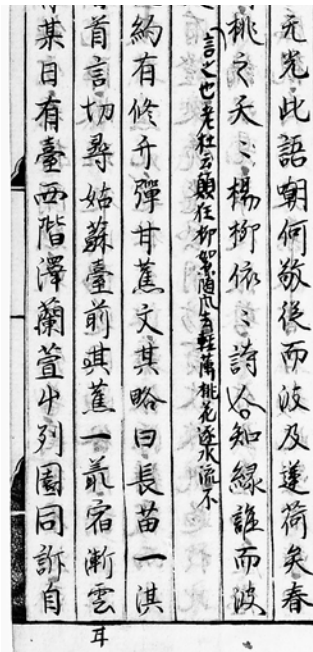 元光此語嘲何敬從而波及蓮荷矣春
桃之夭〻楊柳依〻詩人不知緣誰而波
言之也老杜云顛狂柳絮隨風去輕薄桃花逐水流不
約有修竹彈甘蕉文其略曰長苗一淇
首言切尋姑蘇臺前淇蕉一叢宿漸雲
某日有臺西階澤蘭萱草列園同訴自